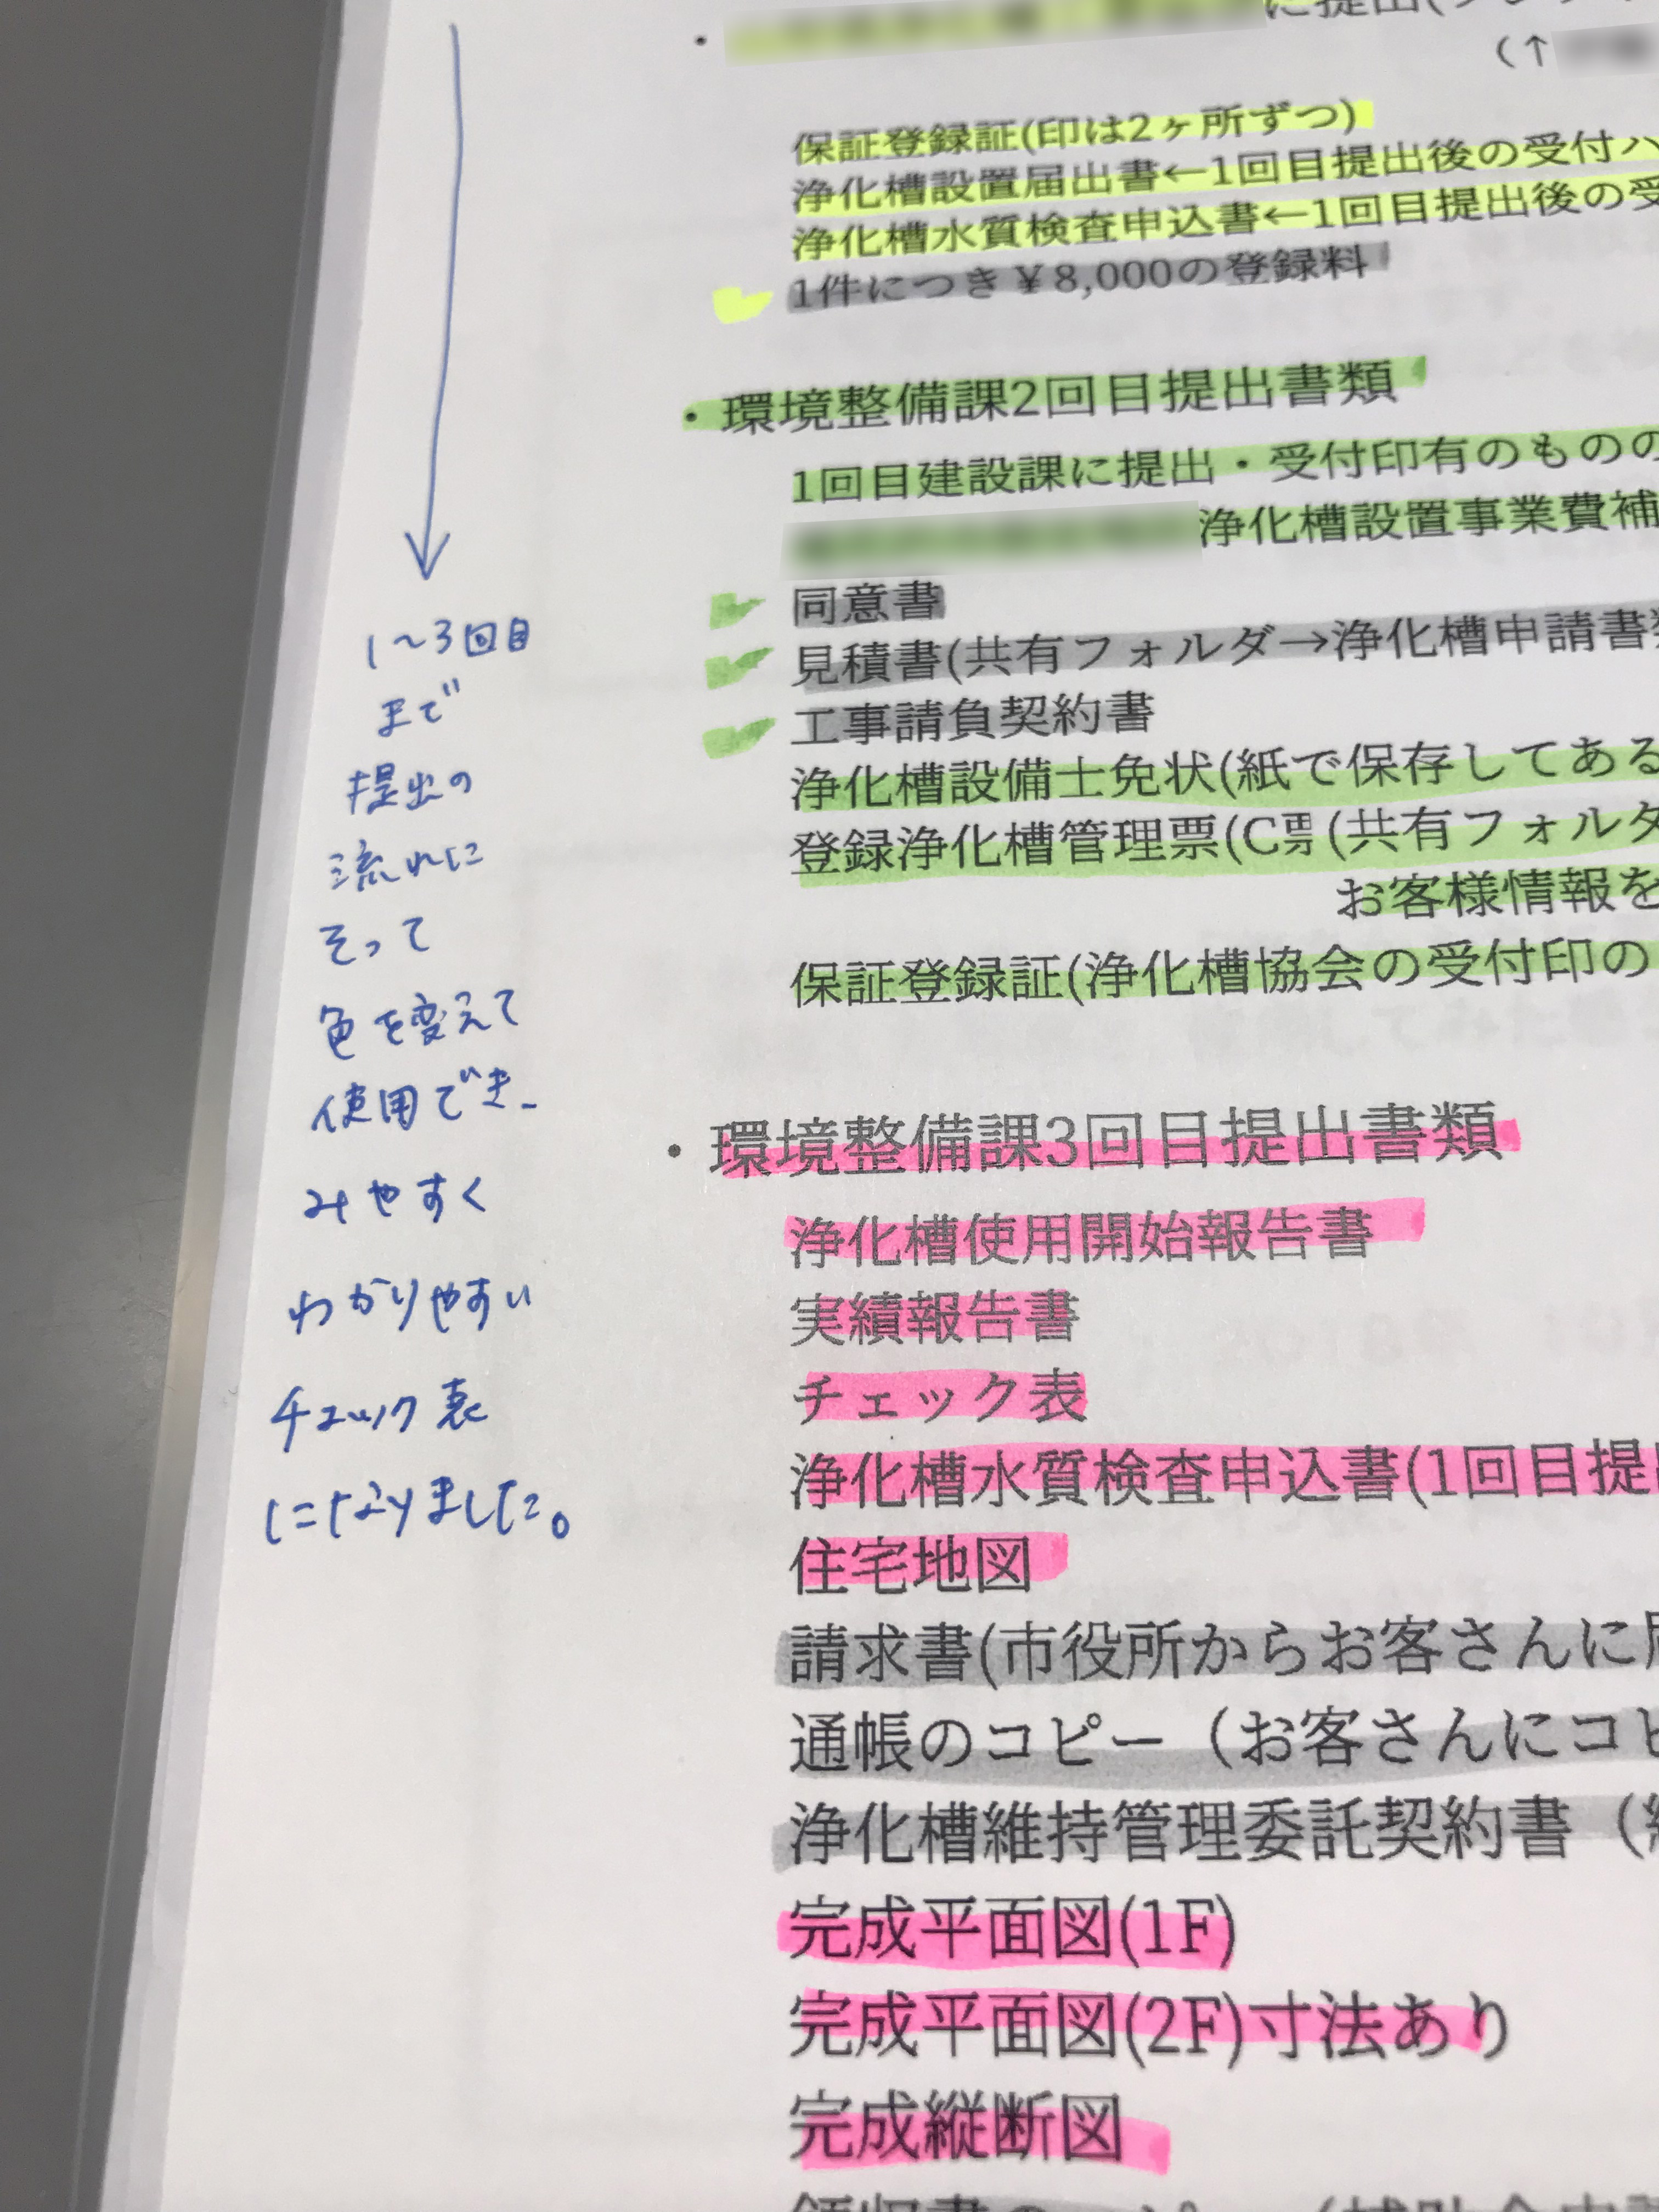 に提出(
(↑
保証登録証(印は2ヶ所ずつ)
浄化槽設置届出書←1回目提出後の受付ハ
浄化槽水質検査申込書←1回目提出後の受
1件につき¥8,000の登録料
・環境整備課2回目提出書類
1回目建設課に提出・受付印有のものの
浄化槽設置事業費補
同意書
見積書(共有フォルダ→浄化槽申請書類
工事請負契約書
浄化槽設備士免状(紙で保存してある
登録浄化槽管理票(C票(共有フォルダ
お客様情報を
保証登録証(浄化槽協会の受付印の
・環境整備課3回目提出書類
浄化槽使用開始報告書
実績報告書
チェック表
浄化槽水質検査申込書(1回目提出
住宅地図
請求書(市役所からお客さんに届
通帳のコピー（お客さんにコピ
浄化槽維持管理委託契約書（
完成平面図(1F)
完成平面図(2F)寸法あり
完成縦断図
1〜3回目
まで
提出の
流れに
そって
色を変えて
使用でき
みやすく
わかりやすい
チェック表
になりました。